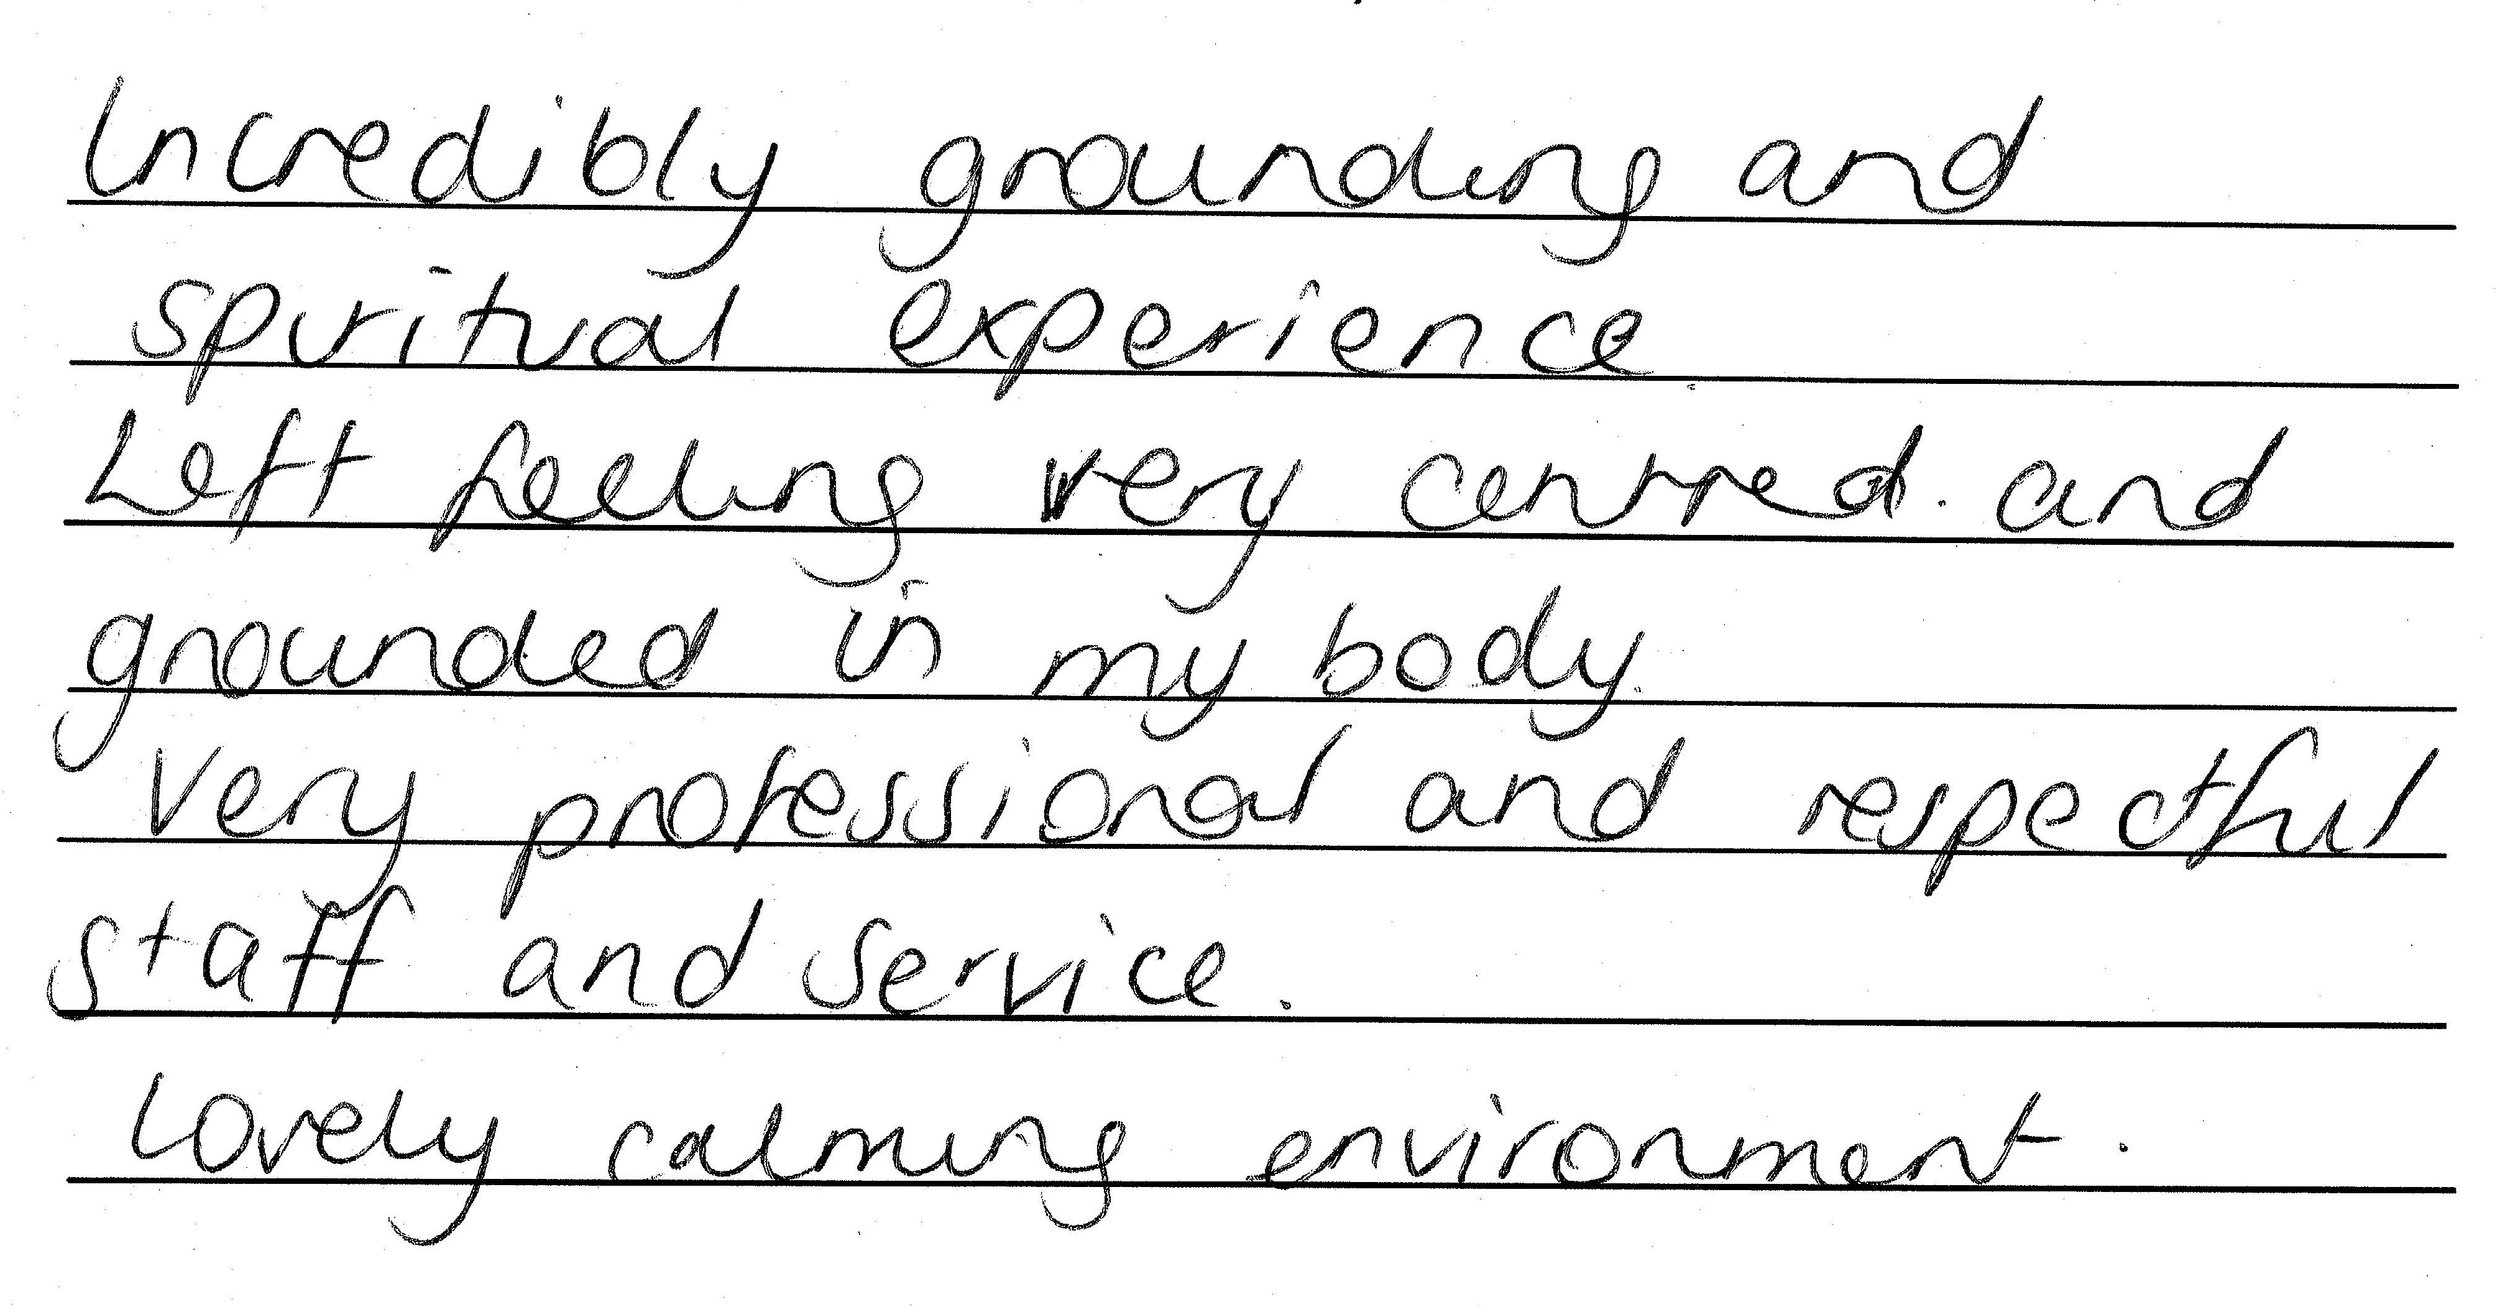 Incredibly grounding and
spiritual experience.
Left feeling very centred. and
grounded in my body.
Very professional and respectful
staff and service.
Lovely calming environment.